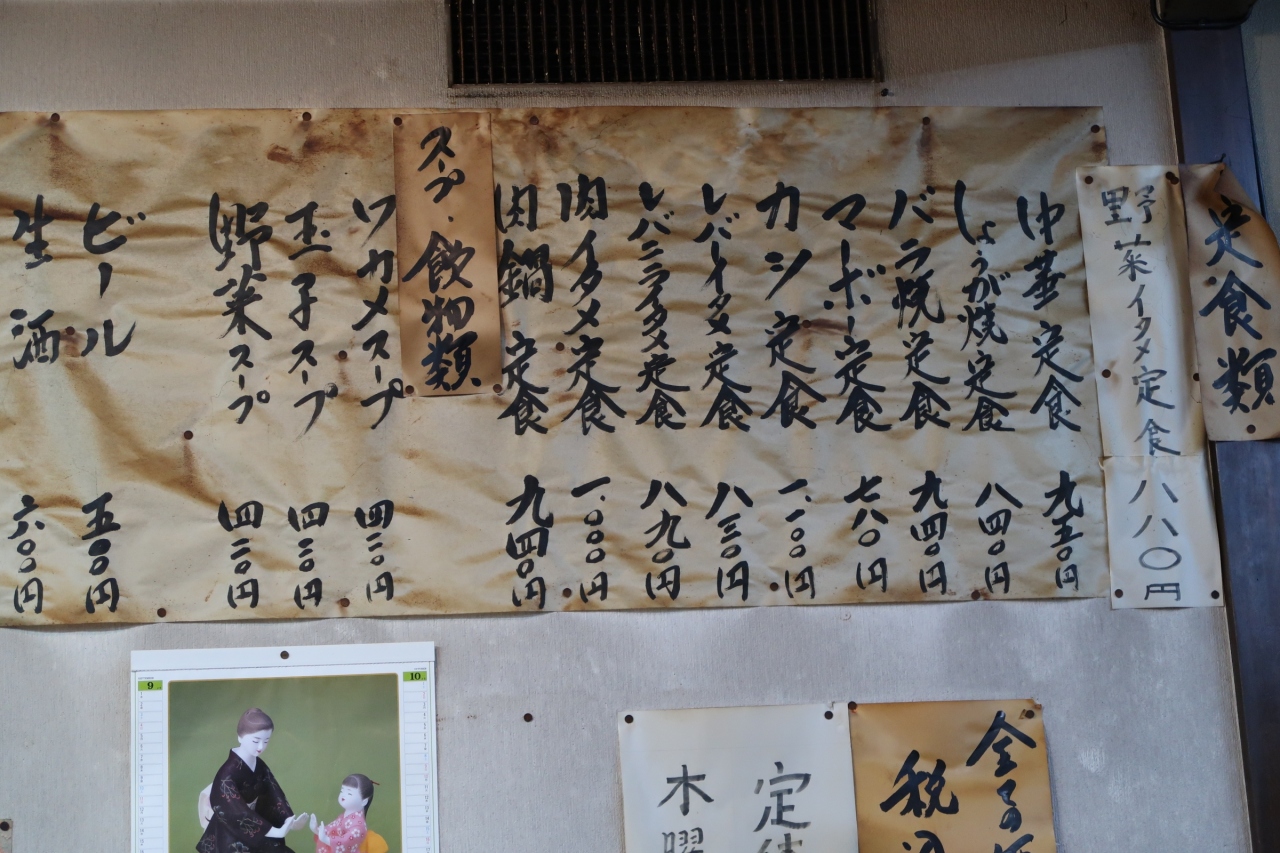 定食類
野菜イタメ定食 八八〇円
中華定食 九五〇円
しょうが焼定食 八四〇円
バラ焼定食 九四〇円
マーボー定食 七八〇円
カシ定食 一、一〇〇円
レバーイタメ定食 八三〇円
レバニライタメ定食 八九〇円
肉イタメ定食 一、〇〇〇円
肉鍋定食 九四〇円
スープ・飲物類
ワカメスープ 四二〇円
玉子スープ 四二〇円
野菜スープ 四二〇円
ビール 五〇〇円
生酒 六〇〇円
9
10
全ての
税
定
木曜